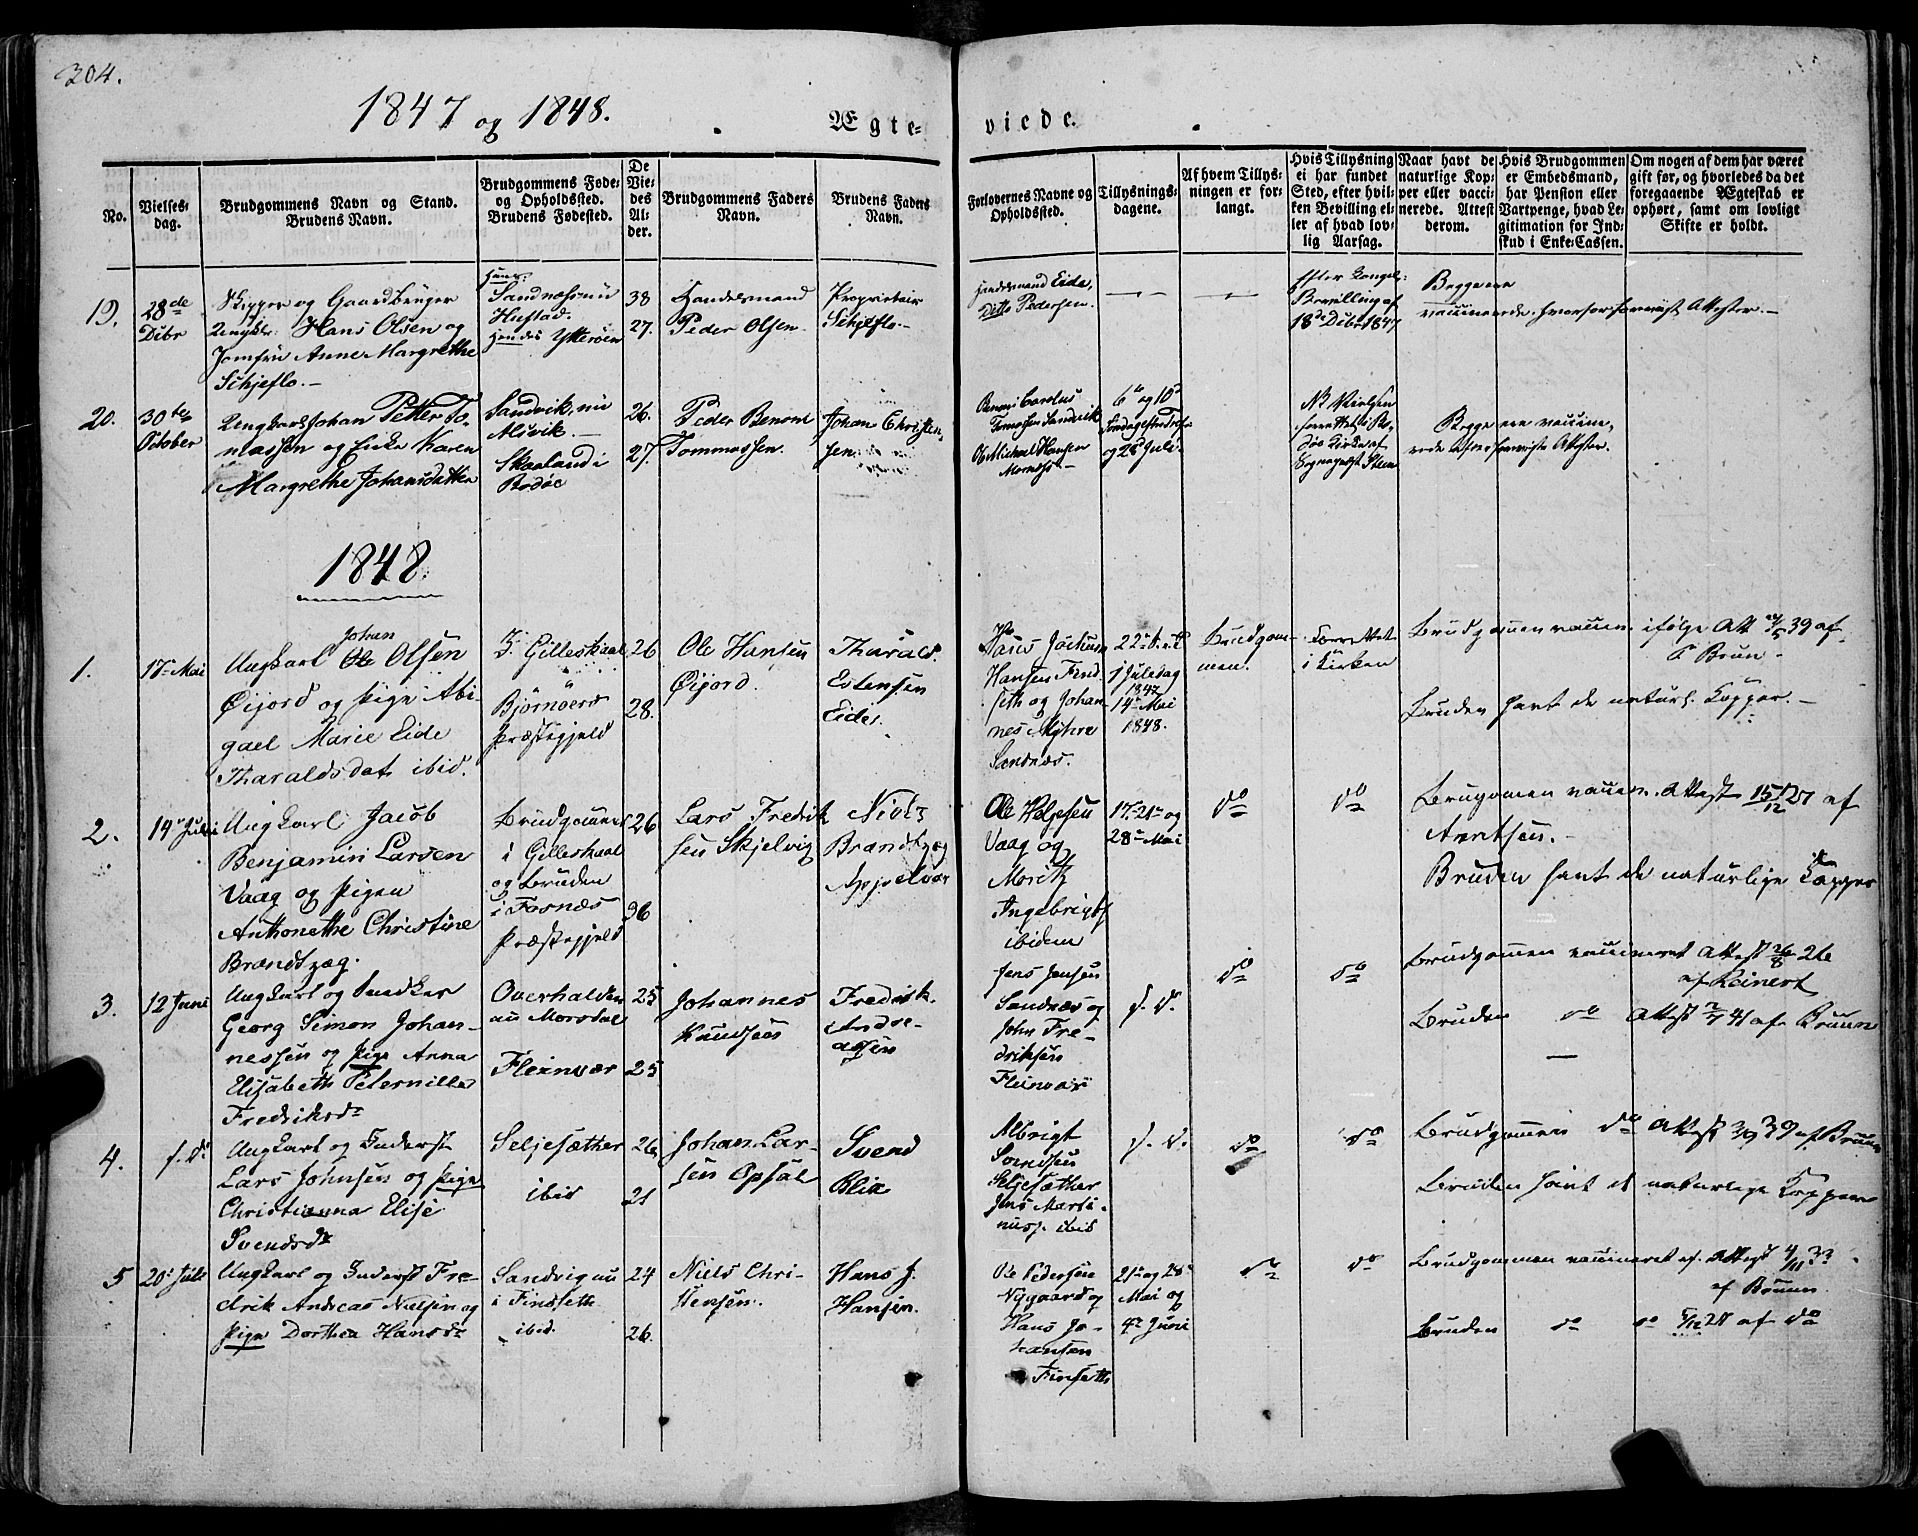 304.
1847 og 1848.
Ægteviede.
No.
Vielsesdag.
Brudgommens Navn og Stand.
Brudens Navn.
Brudgommens Føde-
og Opholdssted.
Brudens Fødested.
De
Vie-
des
Al-
der.
Brudgommens Faders
Navn.
Brudens Faders
Navn.
Forlovernes Navne og
Opholdssted.
Tillysnings-
dagene.
Af hvem Tillys-
ningen er for-
langt.
Hvis Tillysning
ei har fundet
Sted, efter hvil-
ken Bevilling el-
ler af hvad lov-
lig Aarsag.
Naar havt de
naturlige Kop-
per eller vacci-
nerede. Attest
derom.
Hvis Brudgommen
er Embedsmand,
har Pension eller
Vartpenge, hvad Le-
gitimation for Ind-
skud i Enke-Cassen.
Om nogen af dem har været
gift før, og hvorledes da det
foregaaende Ægteskab er
ophørt, samt om lovligt
Skifte er holdt.
19.
28de
Dibr
Skipper og Gaardbruger
Hans Olsen og
Jomfru Anne Margrethe
Schjeflo.
Hustad.
Ytterøen
38
27.
Peder Olsen.
Proprietair
Schjeflo.
Eide,
Ditto Pedersen.
Bevilling af
18de Dibr 1847
Begge ere
20.
30te
October
Ungkarl Johan Petter To-
massen og Enke Karen
Margrethe Johansdatter
Sandvik, nu
Alsvik.
Skaaland i
Bodøe
26.
27.
Peder Benoni
Tommessen.
Johan Christen-
sen
Benoni Carolus
Sandvik
Ole Michael Hansen
6te og 10de
Juli.
Begge ere
1848.
1.
17de Mai
Ungkarl Johan Olsen
Øijord og Pige Abi-
gael Marie Eide
Tharaldsdat ibid.
Gilleskaal
Bjørnøers
Præstegjeld
26
28.
Ole Hansen
Øijord.
Tharald
Estensen
Eide.
Hans Jochum
Hansen Find-
seth og Johan-
nes Myhre
Sandnæs.
1 Juledag
1847
14de Mai
1848.
Brudgom-
men.
Forrettet
i Kirken
Brudgommen vaccin. ifølge Att 39 af
Brun
Bruden havt de naturl. Kopper.
2.
14de Juli
Ungkarl Jacob
Benjamin Larsen
Vaag og Pigen
Anthonethe Christine
Brandtzæg.
Brudgommen
i Gilleskaal
og Bruden
i Fosnæs
Præstegjeld
26
36
Lars Fredrik-
sen Skjelvig
Niels
Brandtzæg
Appelvær
Ole Helgesen
Vaag og
Moritz
Ingebrigts
ibidem
17de 21de og
28de Mai
do
do
Brudgommen vaccin. Attest 15/12 27 af
Arntsen.
Bruden havt de naturlige Kopper
3.
12 Juni
Ungkarl og Snedker
Georg Simon Johan-
nessen og Pige Anna
Elisabeth Peternille
Fredriksdr
Overhalden
nu Morsdal
Fleinvær
25
25
Johannes
Knudsen
Fredrik
Andre-
assen
Jens Jensen
Sandnæs og
John Fre-
driksen
Fleinvær
f. D.
do
do
Brudgommen vaccineret Attest 26/8 26
af Reinert
Bruden do Attest 41 af Bruun
4.
f. D.
Ungkarl og Inderst
Lars Johnsen og Pige
Christianna Elise
Svendsdr
Seljesæther
ibid
26
21
Johan Lar-
sen Opsal
Svend
Blix
Albrigt
Svendsen
Seljesæther
Jens Marti-
nuss. ibid
f. D.
do
do
Brudgommen do Attest 39 af Bruun
Bruden havt de naturlige Kopper
5
20de Juli
Ungkarl og Inderst Fre-
drik Andreas Nielsen og
Pige Dorthea Hansdr
Sandvig nu
i Findseth
ibid.
24
26.
Niels Chri-
stensen.
Hans J.
Hansen.
Ole Pedersen
Nygaard og
Hans Jo-
hansen
Finseth
21de og 28de
Mai og
4de Juni
do
do
Brudgommen vaccineret af. Attest 4/11 33
af Bruun
Bruden do do af do